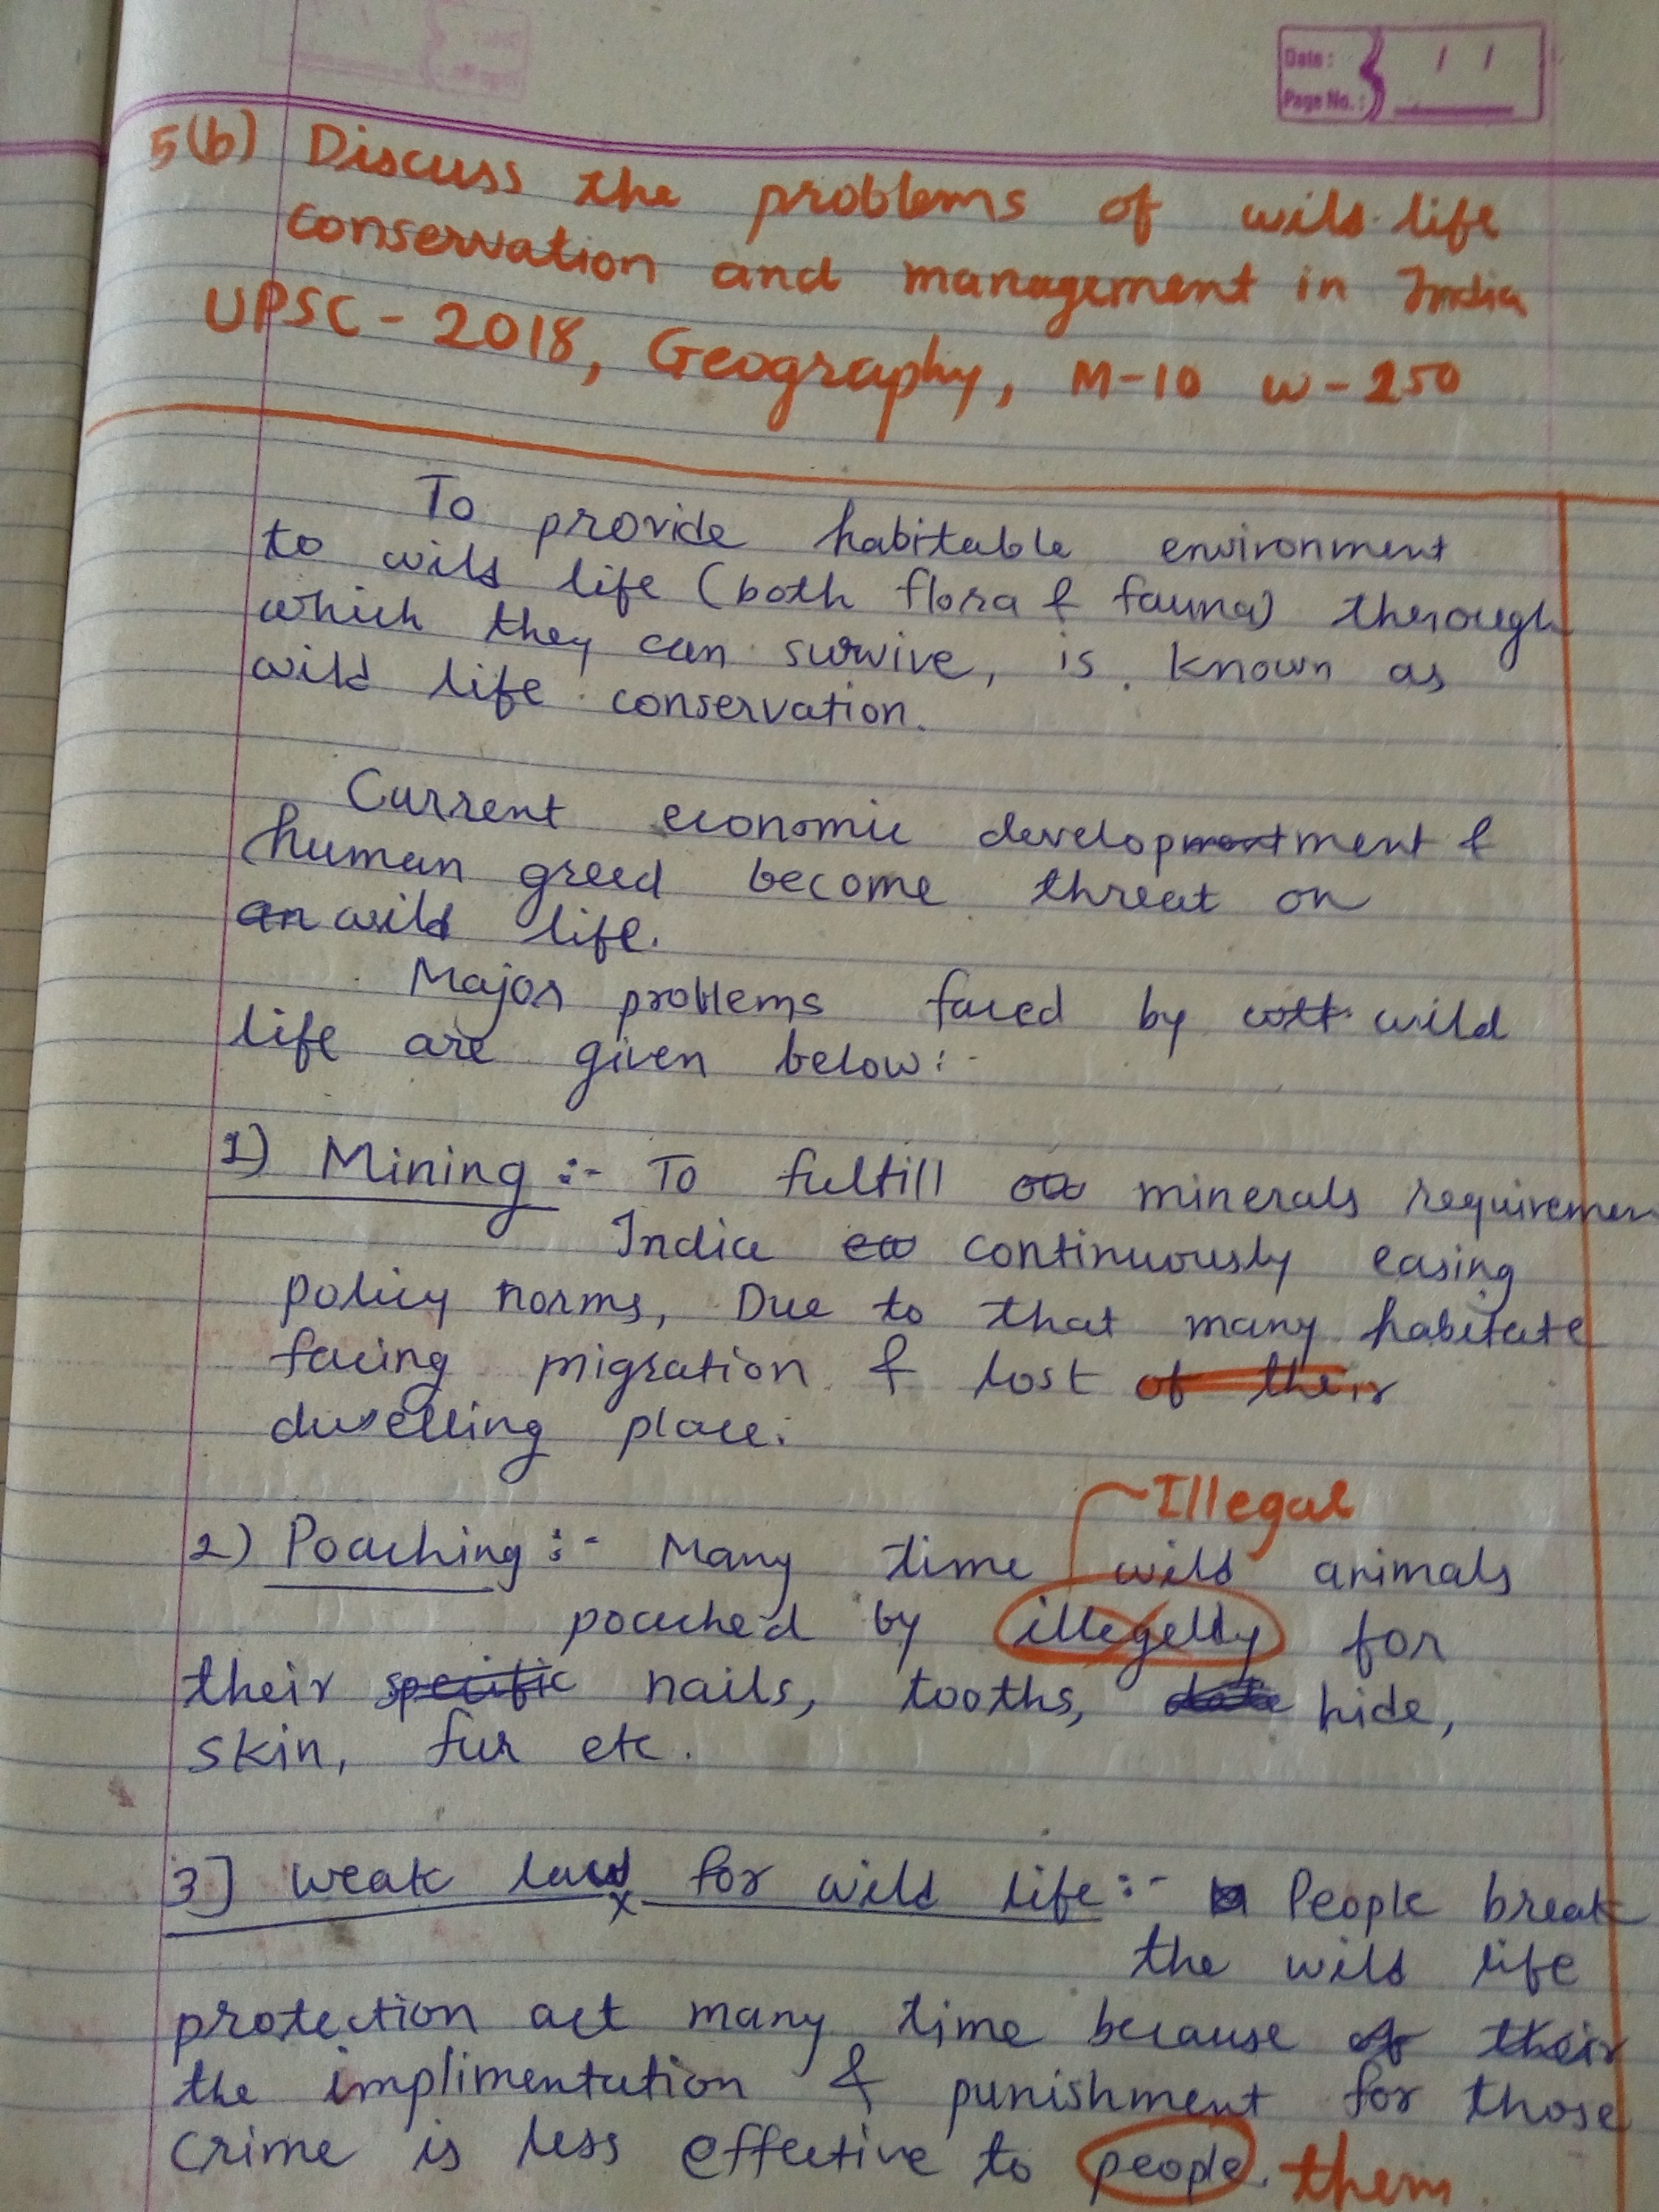 Date : / /
Page No. :
5(b) Discuss the problems of wild life
conservation and management in India
UPSC - 2018, Geography, M-10 W-250
To provide habitable environment
to wild life (both flora & fauna) therough
which they can survive, is known as
wild life conservation.
Current economic development &
human greed become threat on
an wild life.
Major problems faced by wild
life are given below:-
1) Mining :- To fulfill minerals requiremen
India continuously easing
policy norms, Due to that many habitate
facing migration & lost of their
dwelling place.
Illegal
2) Poaching :- Many time wild animals
poached by illegelly for
their specific nails, tooths, hide,
skin, fur etc.
3] Weak laws for wild life :- People break
the wild life
protection act many time because of their
the implimentation & punishment for those
crime is less effective to people. them